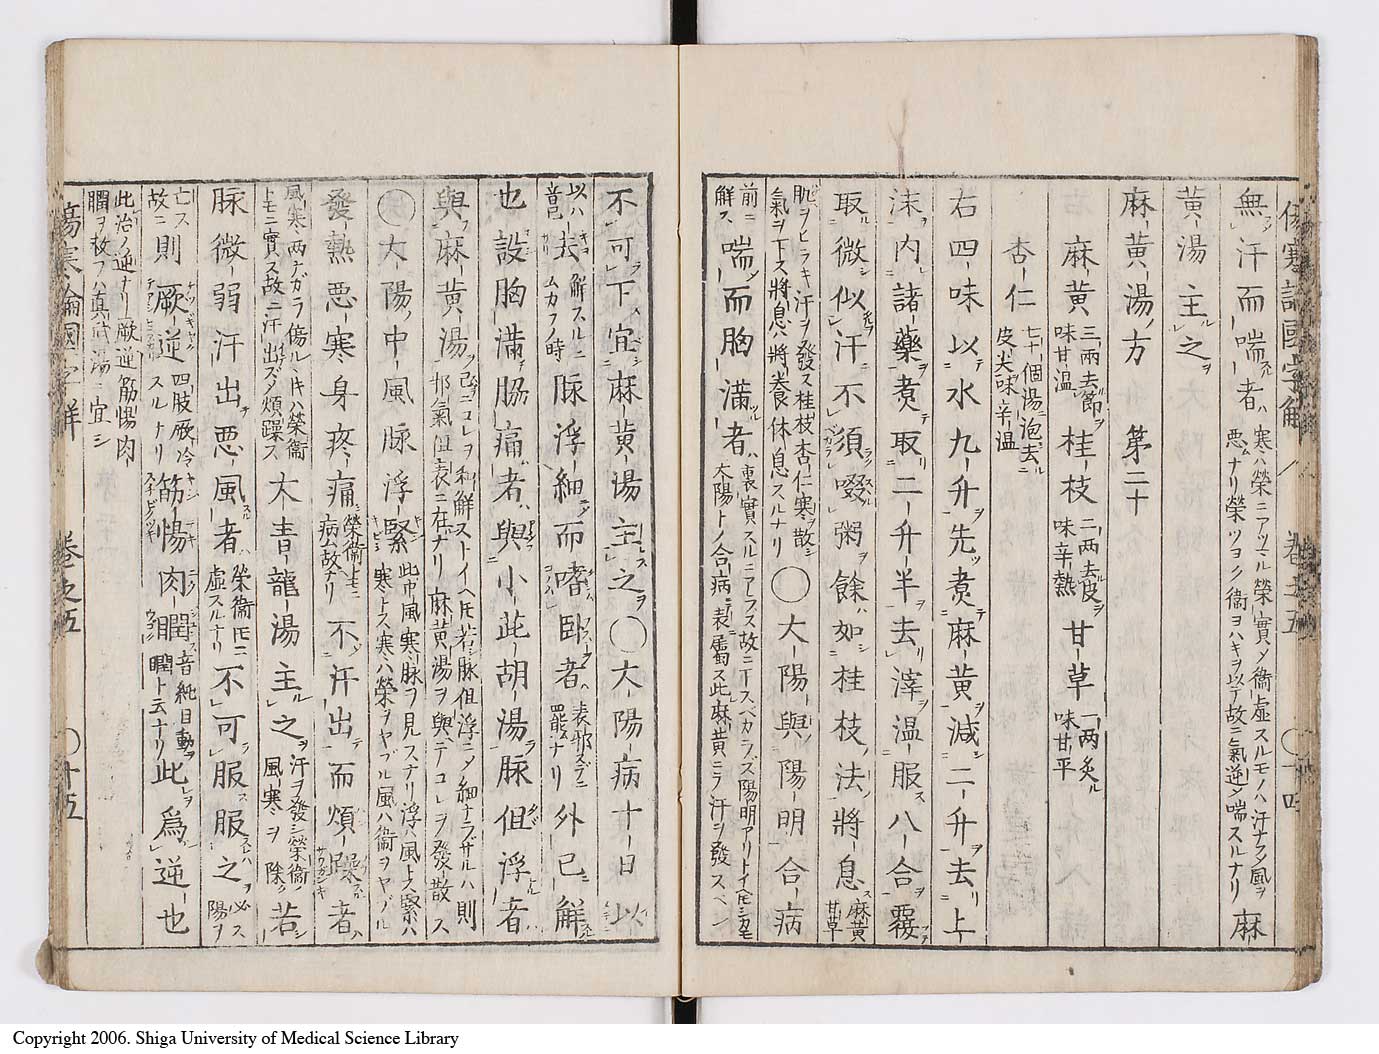 傷寒論國字解 卷之五 〇十四
無汗而喘者 寒ハ榮ニアツマル榮實ノ衞虛スルモノハ汗ナシ風ヲ 悪ムナリ榮ツヨク衞ヨハキヲ以テ故ニ氣逆シ喘スルナリ 麻
黄湯主之
麻黄湯方 第二十
麻黄 三兩去節 味甘温 桂枝 二兩去皮 味辛熱 甘草 一兩炙 味甘平
杏仁 七十個湯泡去 皮尖味辛温
右四味以水九升先煮麻黄減二升去上
沫内諸藥煮取二升半去滓温服八合覆
取微似汗不須啜粥餘如桂枝法將息 麻黄 甘草
肌ヲヒラキ汗ヲ發ス桂枝杏仁寒ヲ散シ 氣ヲ下ス將息ハ將養休息スルナリ 〇大陽與陽明合病
前ニ 解ス 喘而胸滿者 裏實スルニアラス故ニ下スベカラズ陽明アリトイヘ𪜈シカモ 太陽トノ合病 表ニ屬ス此麻黄ニテ汗ヲ發スベシ
不可下宜麻黄湯主之〇大陽病十日以
以ハ 昔已 去 解スルニ ムカフノ時 脉浮細而嗜臥者 表邪スデニ 罷ムナリ 外已解
也設胸滿脇痛者與小茈胡湯脉但浮者
與麻黄湯 已ニコレヲ和解ストイヘ𪜈若シ脉但浮ニメ細ナラザルハ則 邪氣但表ニ在ナリ麻黄湯ヲ與テコレヲ發散ス
〇大陽中風脉浮緊 此中風寒ノ脉ヲ見スナリ浮ハ風トス緊ハ 寒トス寒ハ榮ヲヤブル風ハ衞ヲヤブル
發熱悪寒身疼痛 榮衞上モニ 病ム故ナリ 不汗出而煩躁者
風寒両ナガラ傷ルトキハ榮衞 トモニ實ス故ニ汗出ズメ煩躁ス 大青龍湯主之 汗ヲ發シ榮衞ノ 風寒ヲ除ク 若
脉微弱汗出悪風者 榮衞𪜈ニ 虛スルナリ 不可服服之 必ス 陽ヲ
亡ス 故ニ 則厥逆 四肢厥冷 スルナリ 筋惕肉瞤 音純目動ヲ 瞤ト云ナリ 此爲逆也
此治ノ逆ナリ厥逆筋惕肉 瞤ヲ救フハ真武湯ニ宜シ
傷寒論國字解 卷之五 〇十五
Copyright 2006. Shiga University of Medical Science Library